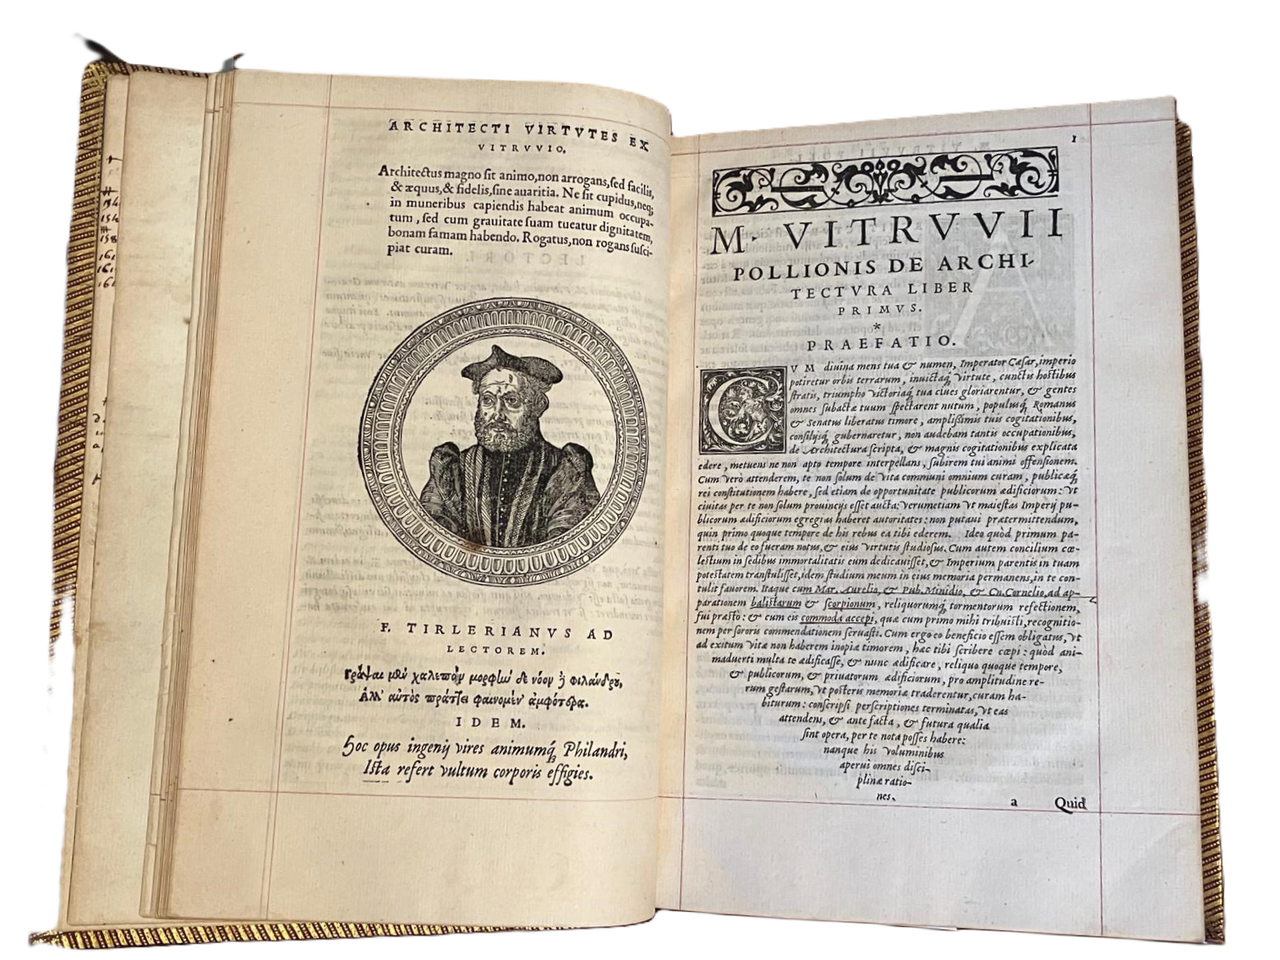 ARCHITECTI VIRTVTES EX
VITRVVIO.
Architectus magno sit animo, non arrogans, sed facilis,
& æquus, & fidelis, sine auaritia. Ne sit cupidus, neq;
in muneribus capiendis habeat animum occupa-
tum, sed cum grauitate suam tueatur dignitatem,
bonam famam habendo. Rogatus, non rogans susci-
piat curam.
F. TIRLERIANVS AD
LECTOREM.
Γράψαι μὲν χαλεπὸν μορφὼ δὲ νόον ἢ φιλάνδρȣ,
Ἀλλ' αὐτὸς πράττει φαινομὲν' ἀμφότερα.
IDEM.
Hoc opus ingenij vires animumq́; Philandri,
Ista refert vultum corporis effigies.
1
M. VITRVVII
POLLIONIS DE ARCHI-
TECTVRA LIBER
PRIMVS.
*
PRAEFATIO.
CVM diuina mens tua & numen, Imperator Cæsar, imperio
potiretur orbis terrarum, inuictaq́; virtute, cunctis hostibus
stratis, triumpho victoriaq́; tua ciues gloriarentur, & gentes
omnes subactæ tuum spectarent nutum, populusq́; Romanus
& Senatus liberatus timore, amplissimis tuis cogitationibus,
consilijsq́; gubernaretur, non audebam tantis occupationibus,
de Architectura scripta, & magnis cogitationibus explicata
edere, metuens ne non apto tempore interpellans, subirem tui animi offensionem.
Cum verò attenderem, te non solum de vita communi omnium curam, publicæq́;
rei constitutionem habere, sed etiam de opportunitate publicorum ædificiorum: vt
ciuitas per te non solum prouincijs esset aucta; verumetiam vt maiestas Imperij pu-
blicorum ædificiorum egregias haberet autoritates: non putaui prætermittendum,
quin primo quoque tempore de his rebus ea tibi ederem. Ideo quòd primum pa-
renti tuo de eo fueram notus, & eius virtutis studiosus. Cum autem concilium cœ-
lestium in sedibus immortalitatis eum dedicauisset, & Imperium parentis in tuam
potestatem transtulisset, idem studium meum in eius memoria permanens, in te con-
tulit fauorem. Itaque cum Mar. Aurelio, & Pub. Minidio, & Cn. Cornelio, ad ap-
parationem balistarum & scorpionum, reliquorumq́; tormentorum refectionem,
fui præstò: & cum eis commoda accepi, quæ cum primo mihi tribuisti, recognitio-
nem per sororis commendationem seruasti. Cum ergo eo beneficio essem obligatus, vt
ad exitum vitæ non haberem inopiæ timorem, hæc tibi scribere cœpi: quòd ani-
maduerti multa te ædificasse, & nunc ædificare, reliquo quoque tempore,
& publicorum, & priuatorum ædificiorum, pro amplitudine re-
rum gestarum, vt posteris memoriæ traderentur, curam ha-
biturum: conscripsi perscriptiones terminatas, vt eas
attendens, & ante facta, & futura qualia
sint opera, per te nota posses habere:
nanque his voluminibus
aperui omnes disci-
plinæ ratio-
nes.
a Quid